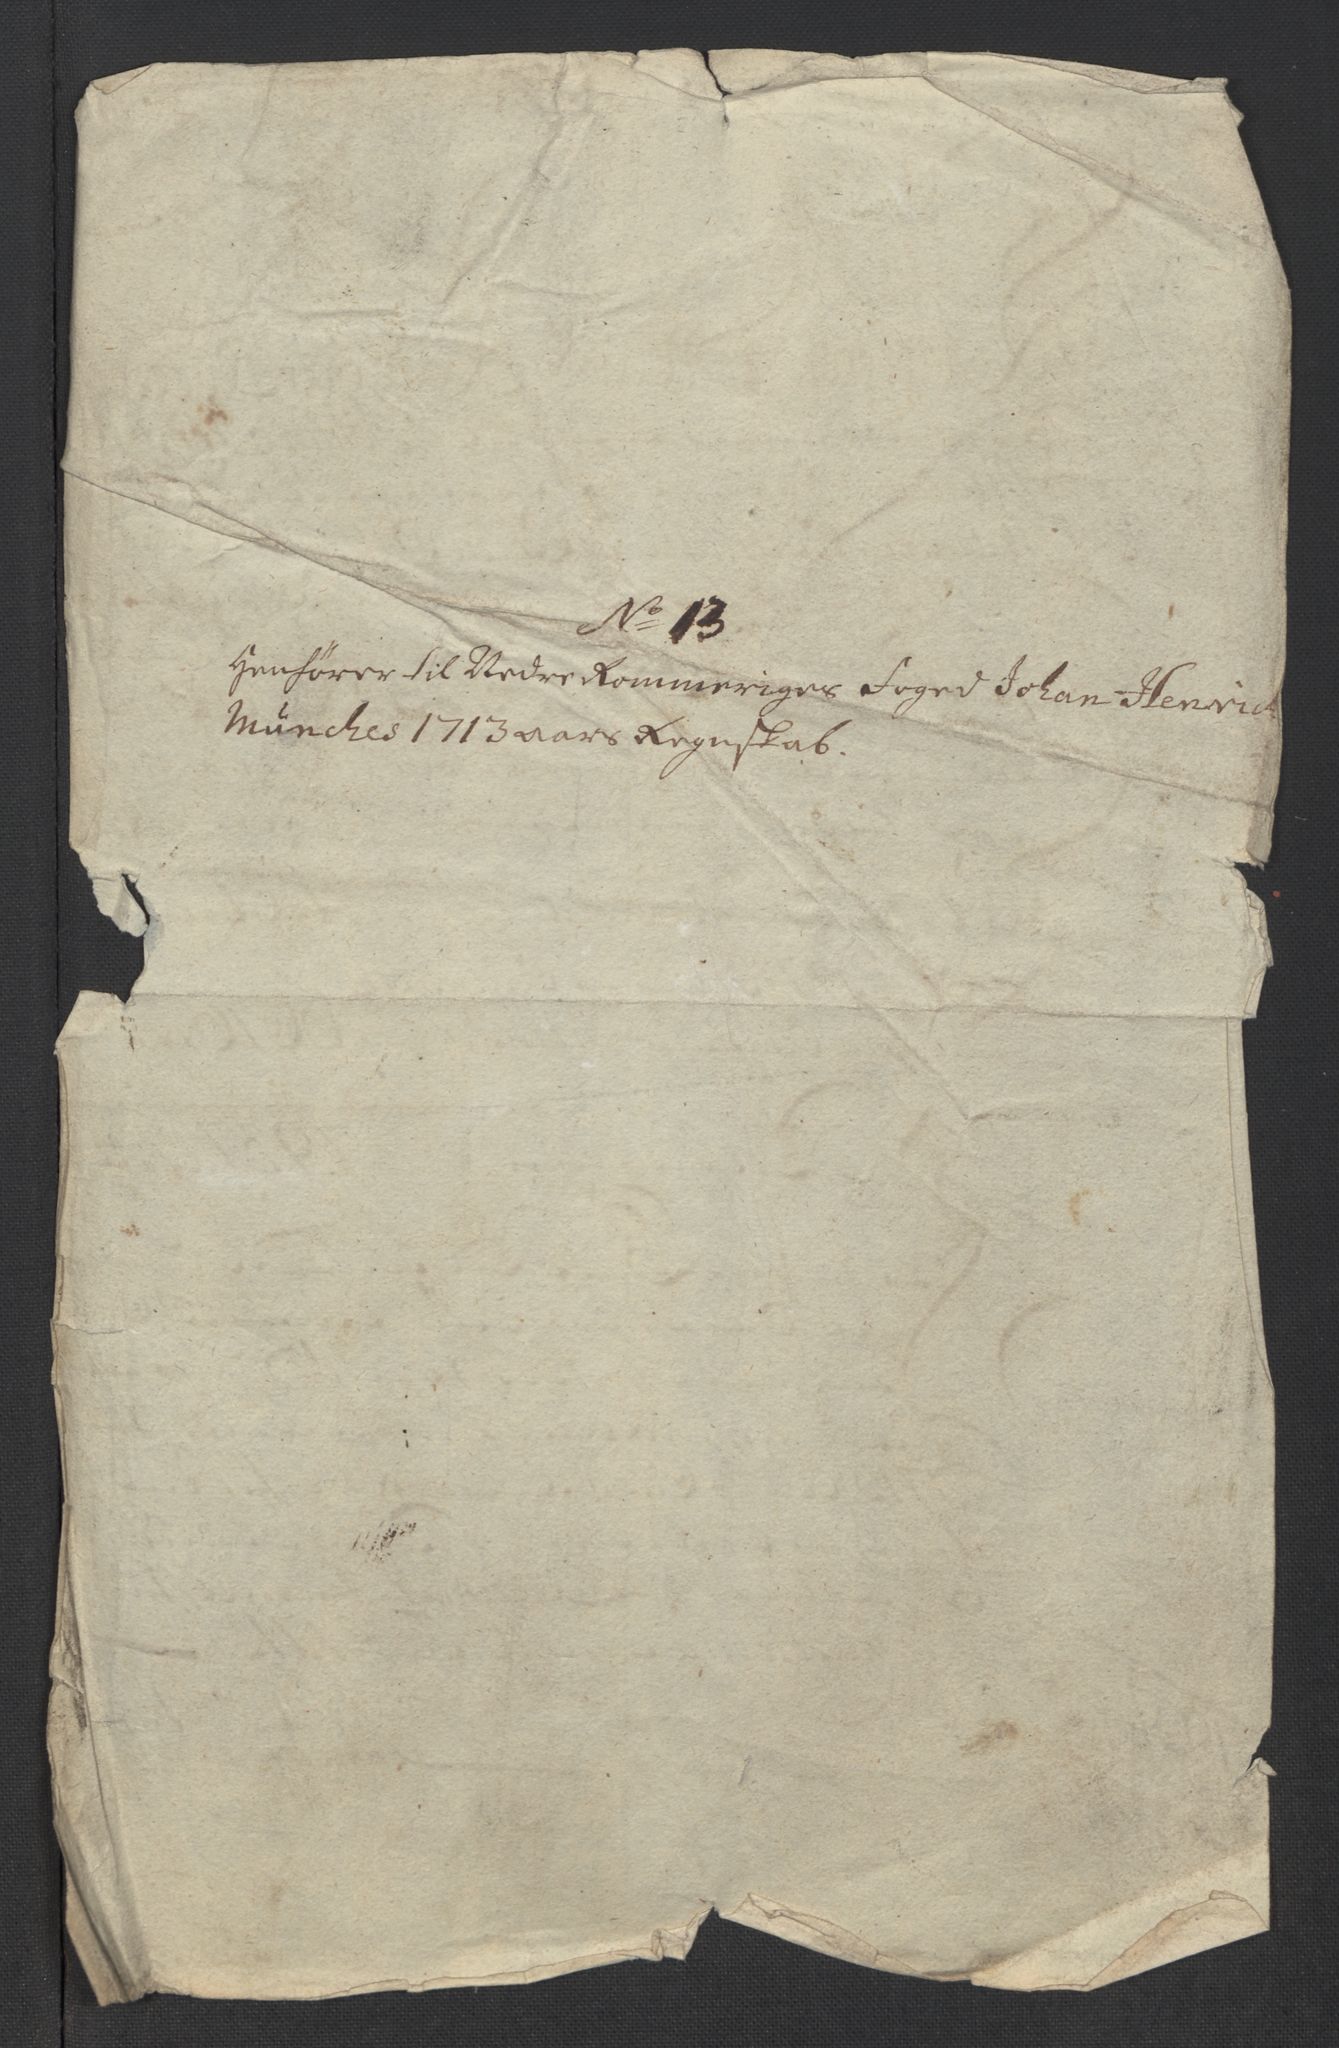 No 13
Henhörer til Nedre Rommeriges Foged Johan Henrich
Münches 1713 aars Regnskab.